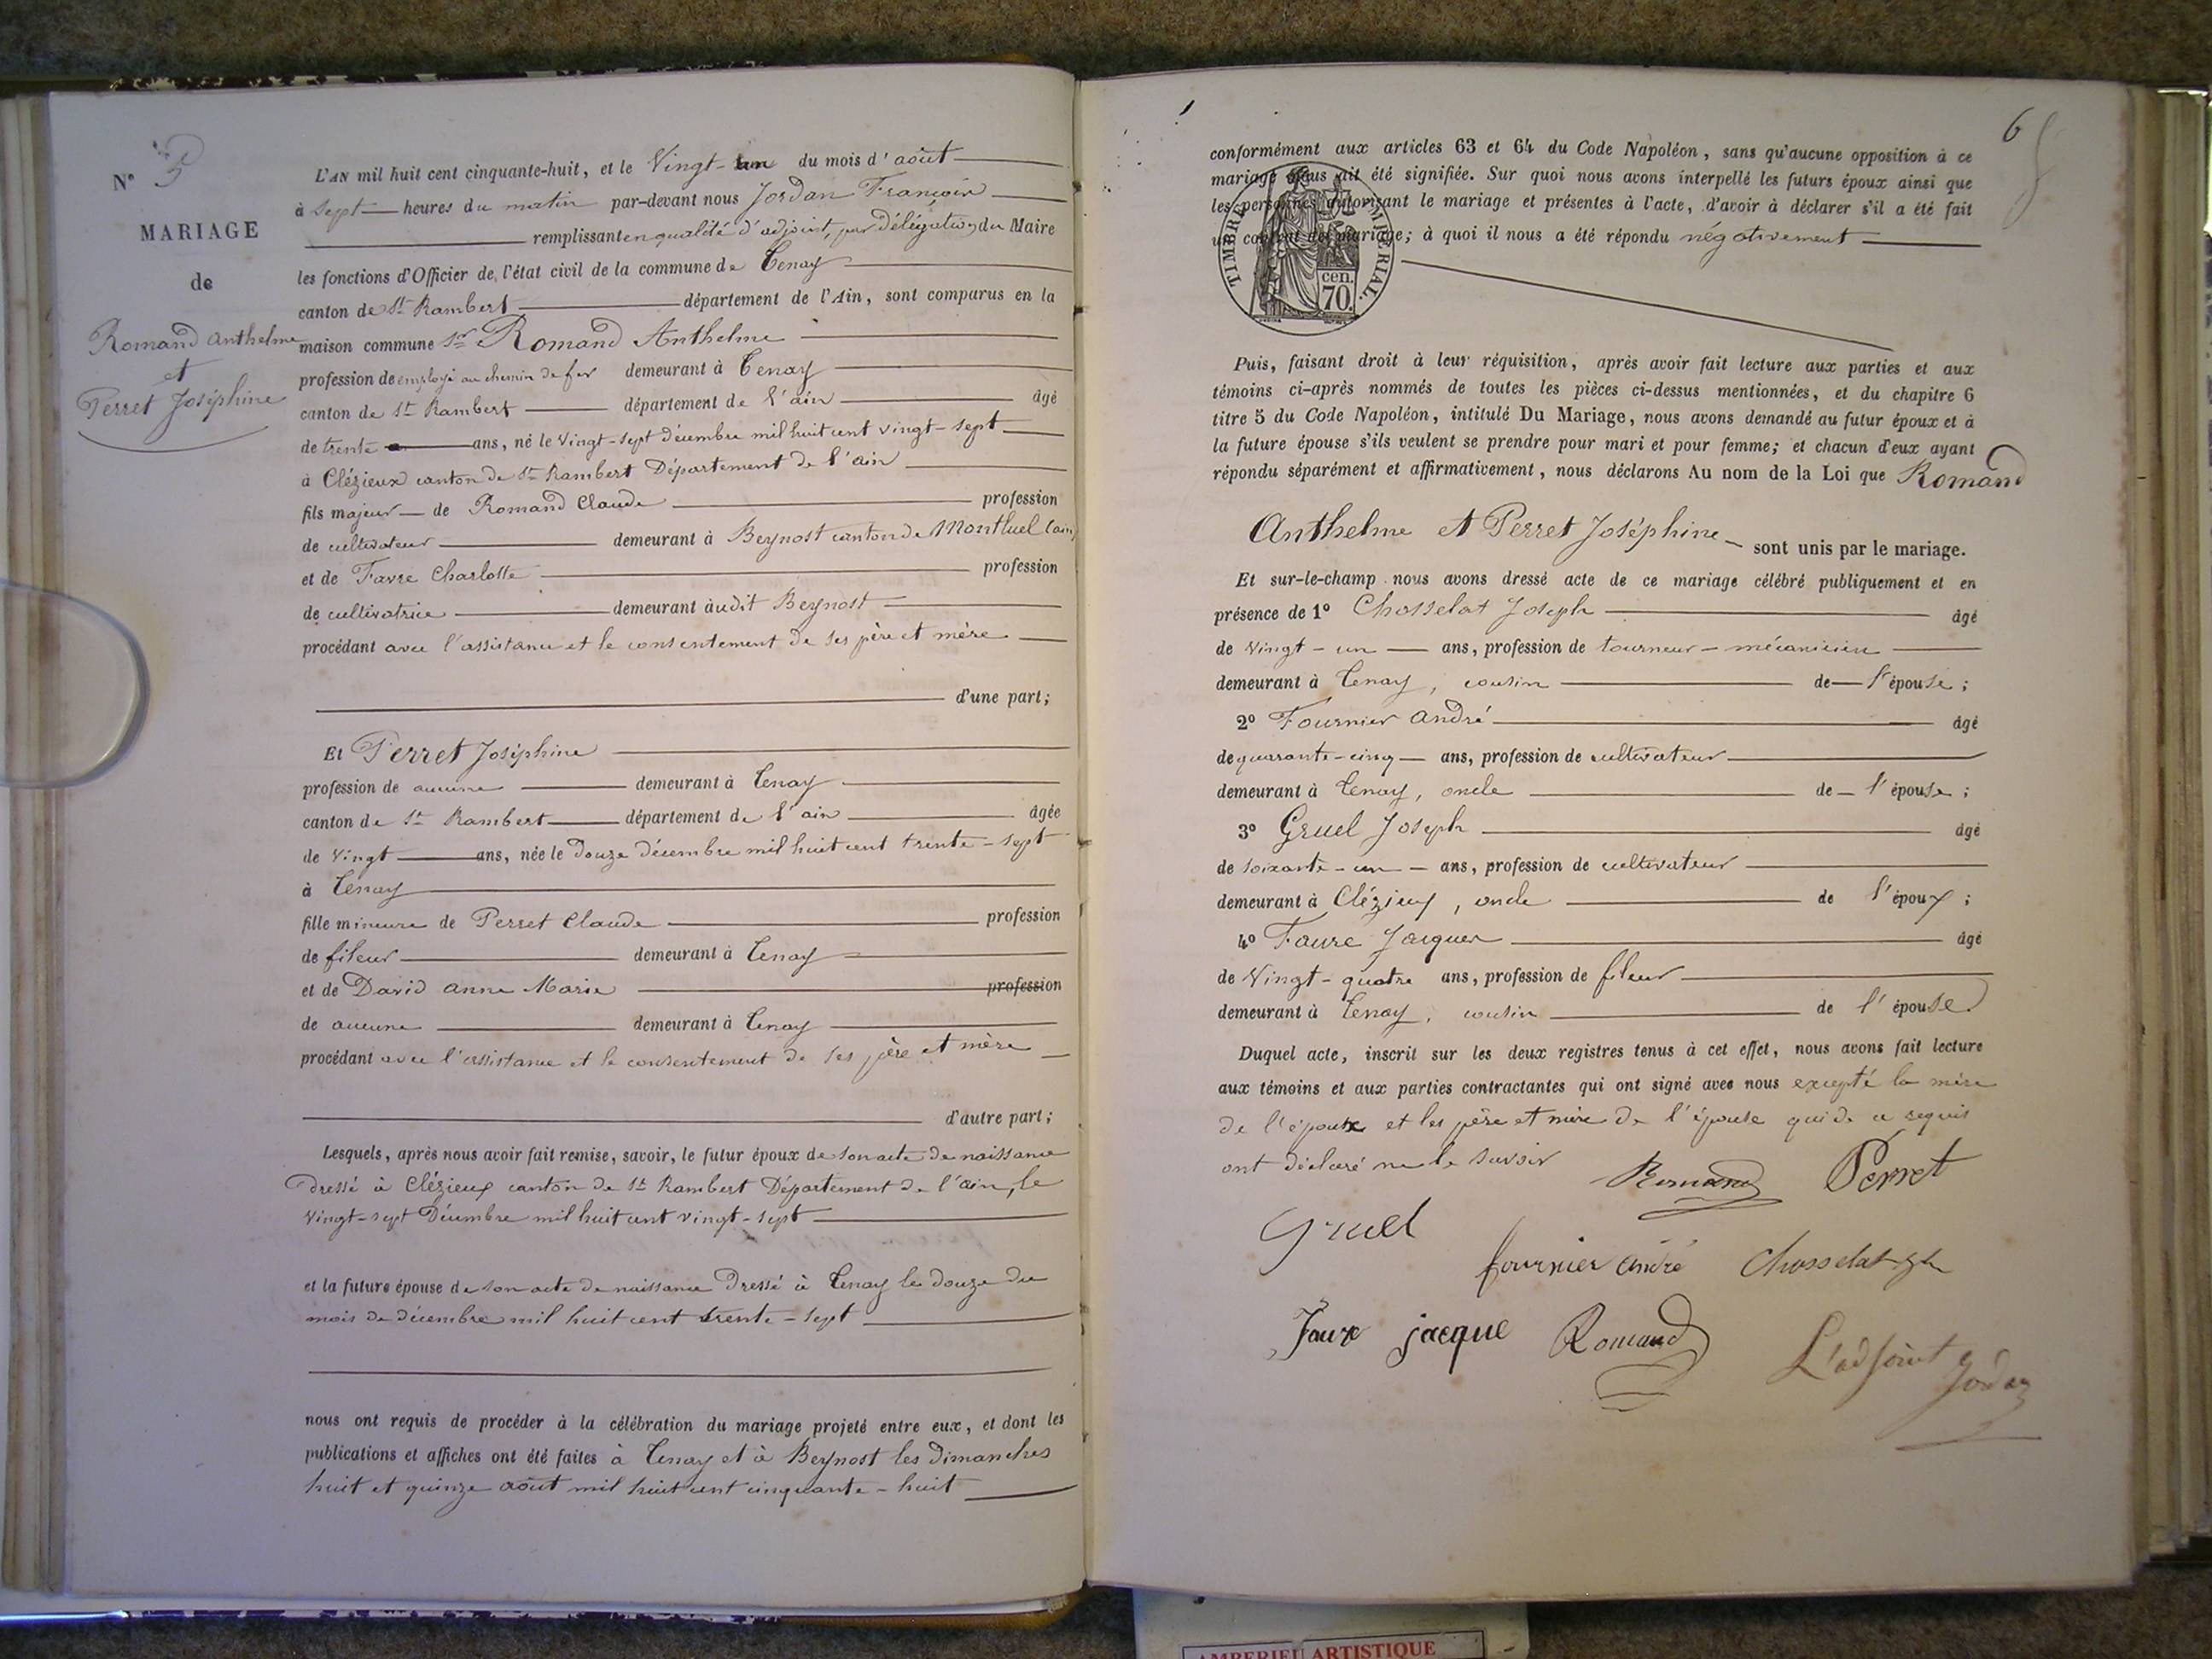 N° 5
MARIAGE
de
Romand Anthelme
et
Perret Joséphine
L'AN mil huit cent cinquante-huit, et le Vingt-un du mois d'août
à sept heures du matin par-devant nous Jordan François
remplissant en qualité d'adjoint, par Délégation du Maire
les fonctions d'Officier de l'état civil de la commune de Tenay
canton de St Rambert département de l'Ain, sont comparus en la
maison commune Sr Romand Anthelme
profession de employé au chemin de fer demeurant à Tenay
canton de St Rambert département de l'ain âgé
de trente ans, né le Vingt-sept Décembre mil huit cent vingt-sept
à Clézieux canton de St Rambert Département de l'ain
fils majeur de Romand Claude profession
de cultivateur demeurant à Beynost canton de Montluel (ain)
et de Favre Charlotte profession
de cultivatrice demeurant audit Beynost
procédant avec l'assistance et le consentement de ses père et mère
d'une part;
Et Perret Joséphine
profession de aucune demeurant à Tenay
canton de St Rambert département de l'ain âgée
de vingt ans, née le Douze Décembre mil huit cent trente-sept
à Tenay
fille mineure de Perret Claude profession
de fileur demeurant à Tenay
et de David anne Marie profession
de aucune demeurant à Tenay
procédant avec l'assistance et le consentement de ses père et mère
d'autre part;
Lesquels, après nous avoir fait remise, savoir, le futur époux de son acte de naissance
Dressé à Clézieux canton de St Rambert Département de l'ain, le
Vingt-sept Décembre mil huit cent vingt-sept
et la future épouse de son acte de naissance Dressé à Tenay le Douze du
mois de décembre mil huit cent trente-sept
nous ont requis de procéder à la célébration du mariage projeté entre eux, et dont les
publications et affiches ont été faites à Tenay et à Beynost les Dimanches
huit et quinze août mil huit cent cinquante-huit
6
conformément aux articles 63 et 64 du Code Napoléon, sans qu'aucune opposition à ce
mariage nous ait été signifiée. Sur quoi nous avons interpellé les futurs époux ainsi que
les personnes autorisant le mariage et présentes à l'acte, d'avoir à déclarer s'il a été fait
un contrat de mariage; à quoi il nous a été répondu négativement
TIMBRE IMPERIAL.
cen.
70.
Puis, faisant droit à leur réquisition, après avoir fait lecture aux parties et aux
témoins ci-après nommés de toutes les pièces ci-dessus mentionnées, et du chapitre 6
titre 5 du Code Napoléon, intitulé Du Mariage, nous avons demandé au futur époux et à
la future épouse s'ils veulent se prendre pour mari et pour femme; et chacun d'eux ayant
répondu séparément et affirmativement, nous déclarons Au nom de la Loi que Romand
Anthelme et Perret Joséphine sont unis par le mariage.
Et sur-le-champ nous avons dressé acte de ce mariage célébré publiquement et en
présence de 1° Chosselat Joseph âgé
de Vingt-un ans, profession de tourneur-mécanicien
demeurant à Tenay, cousin de l'épouse;
2° Fournier andré âgé
de quarante-cinq ans, profession de cultivateur
demeurant à Tenay, oncle de l'épouse;
3° Gruel Joseph âgé
de soixante-un ans, profession de cultivateur
demeurant à Clézieux, oncle de l'époux;
4° Faure Jacques âgé
de Vingt-quatre ans, profession de fileur
demeurant à Tenay, cousin de l'épouse
Duquel acte, inscrit sur les deux registres tenus à cet effet, nous avons fait lecture
aux témoins et aux parties contractantes qui ont signé avec nous excepté la mère
de l'époux et les père et mère de l'épouse qui de ce requis
ont déclaré ne le savoir
Romand Perret
Gruel
fournier andré Chosselat Jh
Faure jacque Romand L'adjoint
Jordan
AMBERIEU ARTISTIQUE